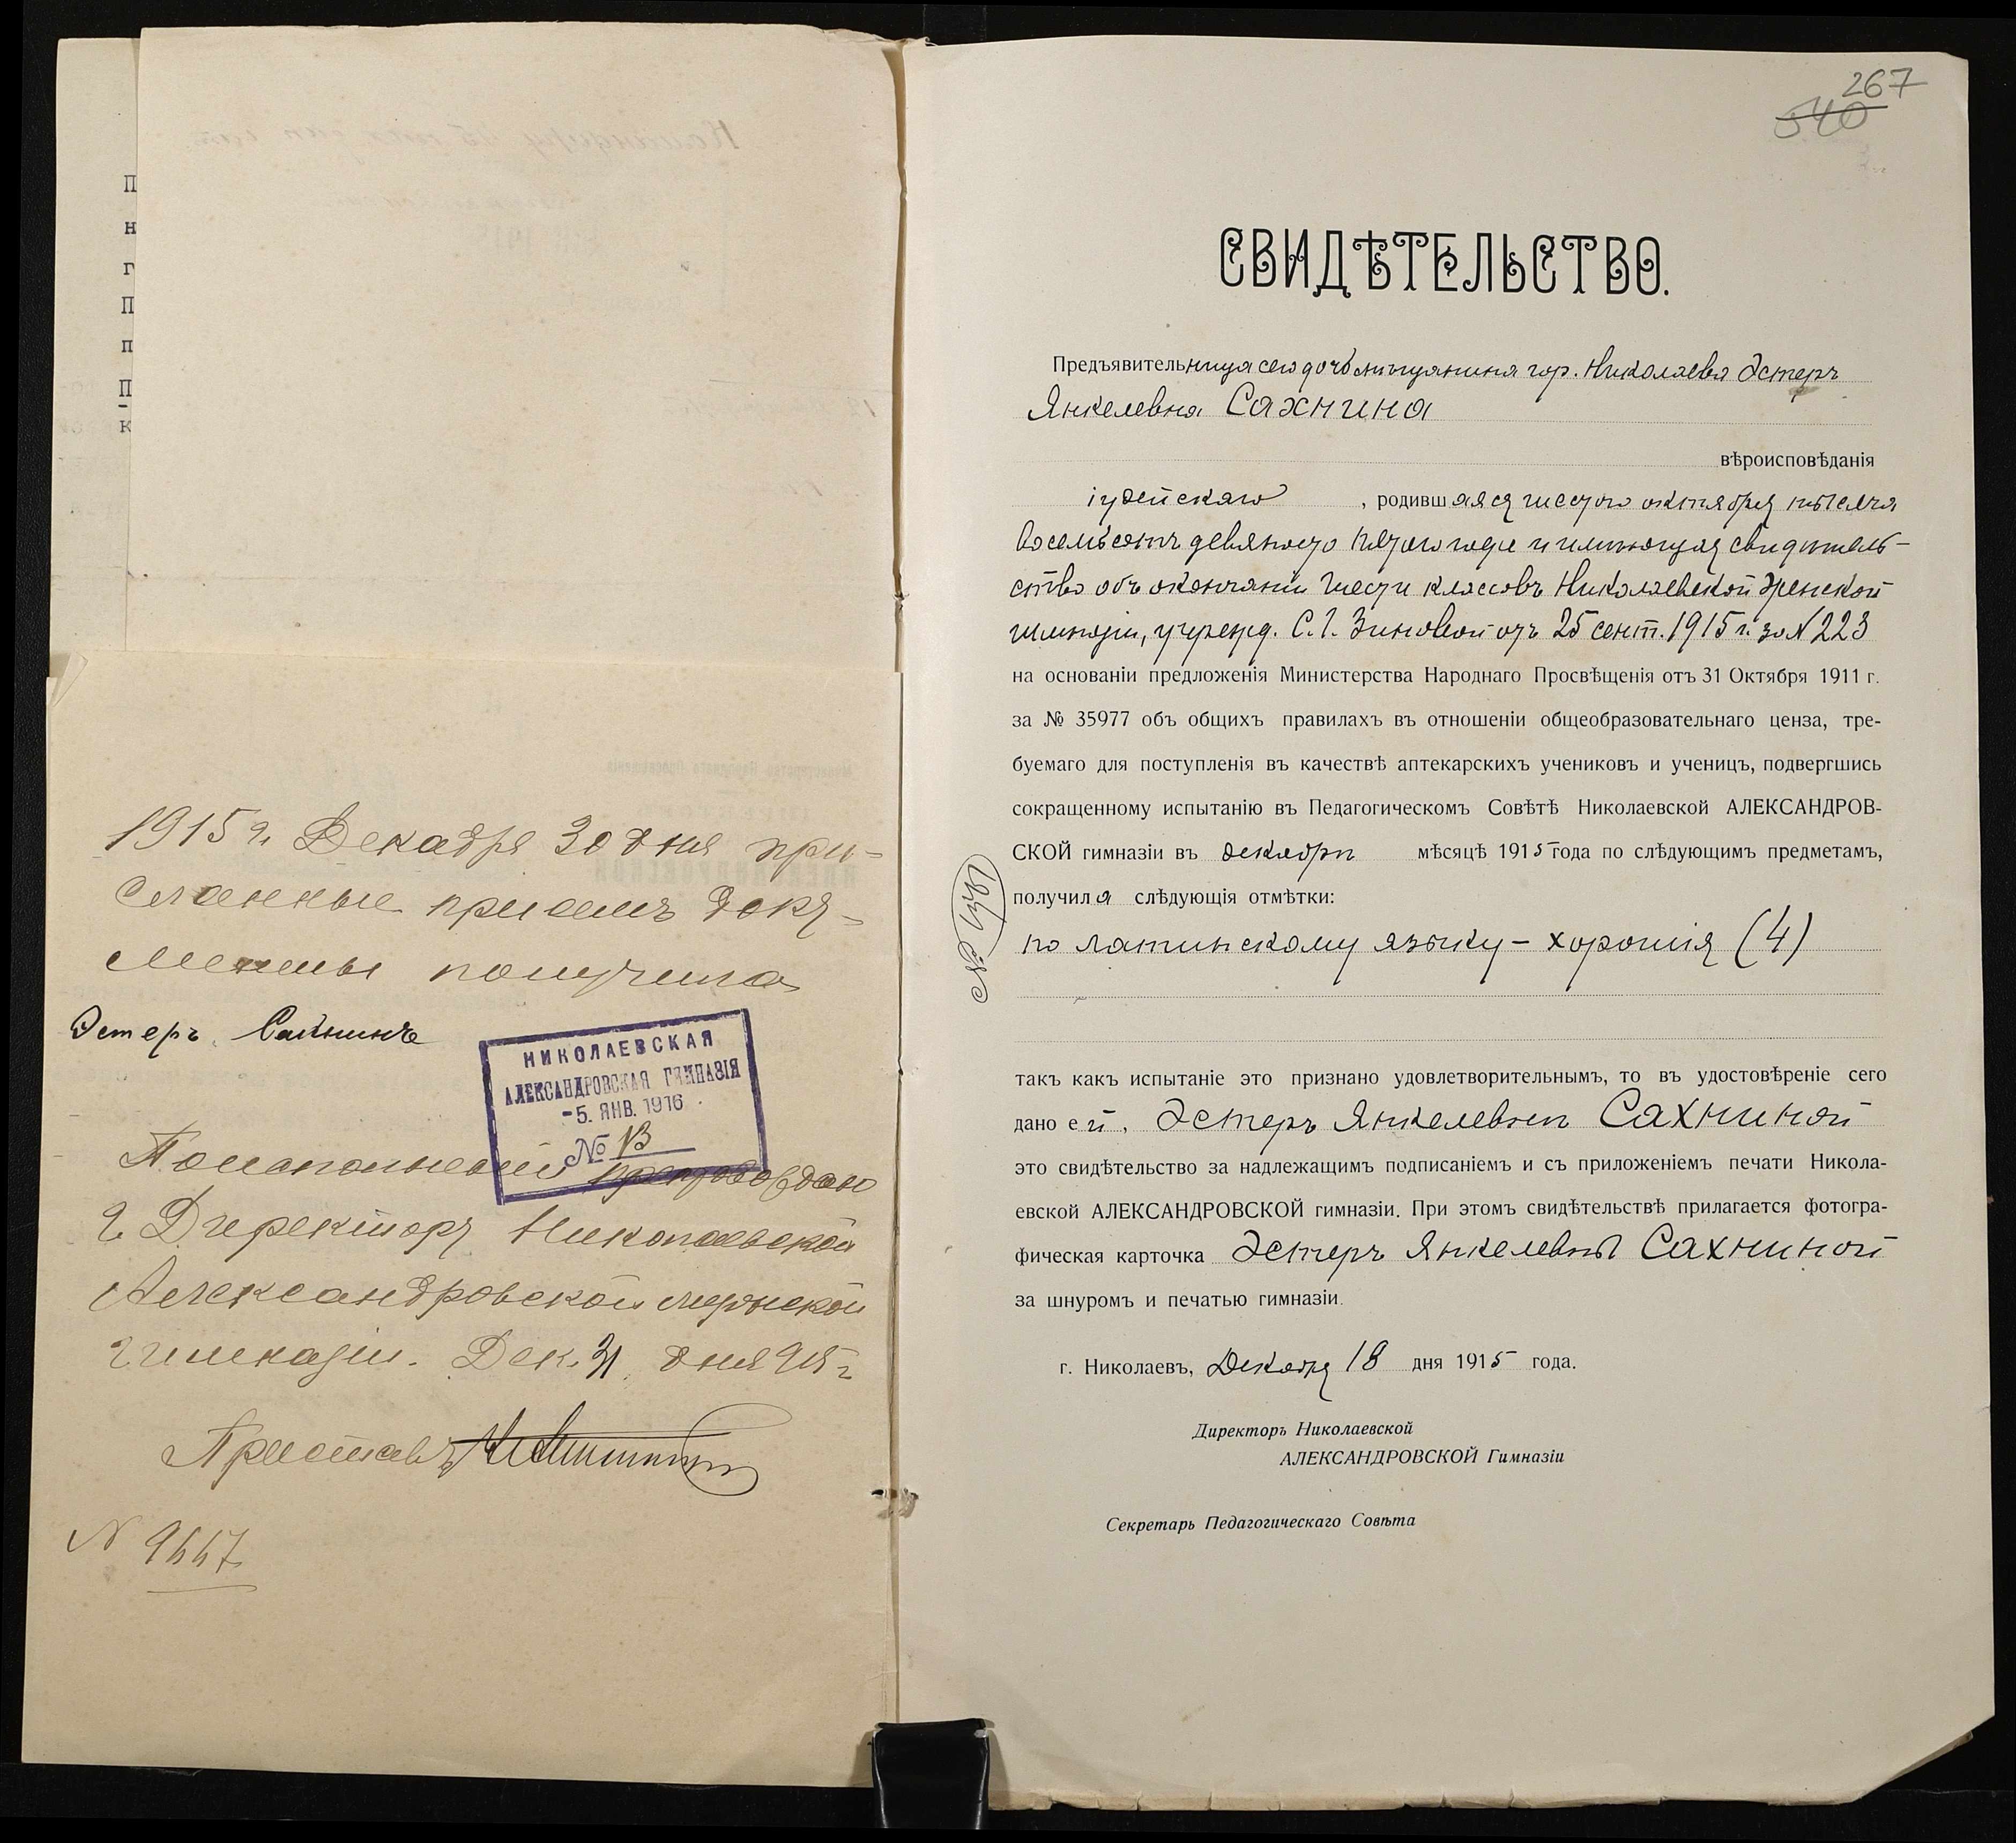 П
н
г
П
п
П
к
1915 г. Декабря 30 дня при-
сланные при семъ доку-
менты получила
Эстеръ Сахнинъ
НИКОЛАЕВСКАЯ
АЛЕКСАНДРОВСКАЯ ГИМНАЗІЯ
-5. ЯНВ. 1916
№ 13
По исполненіи препровождаю
Г. Директору Николаевской
Александровской мужской
гимназіи. Дек. 31 дня 915 г
Приставъ
N 9667
267
540
СВИДѢТЕЛЬСТВО.
Предъявительница сего дочь мѣщанина гор. Николаева Эстеръ
Янкелевна Сахнина
вѣроисповѣданія
іудейскаго, родившаяся шестого октября тысяча
восемьсотъ девяносто пятого года и имѣющая свидѣтель-
ство объ окончаніи шести классовъ Николаевской женской
гимназіи, учрежд. С. І. Зиновой отъ 25 сент. 1915 г. за N 223
на основаніи предложенія Министерства Народнаго Просвѣщенія отъ 31 Октября 1911 г.
за № 35977 объ общихъ правилахъ въ отношеніи общеобразовательнаго ценза, тре-
буемаго для поступленія въ качествѣ аптекарскихъ учениковъ и ученицъ, подвергшись
сокращенному испытанію въ Педагогическомъ Совѣтѣ Николаевской АЛЕКСАНДРОВ-
СКОЙ гимназіи въ декабрѣ мѣсяцѣ 1915 года по слѣдующимъ предметамъ,
получила слѣдующія отмѣтки:
по латинскому языку – хорошія (4)
такъ какъ испытаніе это признано удовлетворительнымъ, то въ удостовѣреніе сего
дано ей, Эстеръ Янкелевнѣ Сахниной
это свидѣтельство за надлежащимъ подписаніемъ и съ приложеніемъ печати Никола-
евской АЛЕКСАНДРОВСКОЙ гимназіи. При этомъ свидѣтельствѣ прилагается фотогра-
фическая карточка Эстеръ Янкелевны Сахниной
за шнуромъ и печатью гимназіи.
г. Николаевъ, Декабря 18 дня 1915 года.
Директоръ Николаевской
АЛЕКСАНДРОВСКОЙ Гимназіи
Секретарь Педагогическаго Совѣта